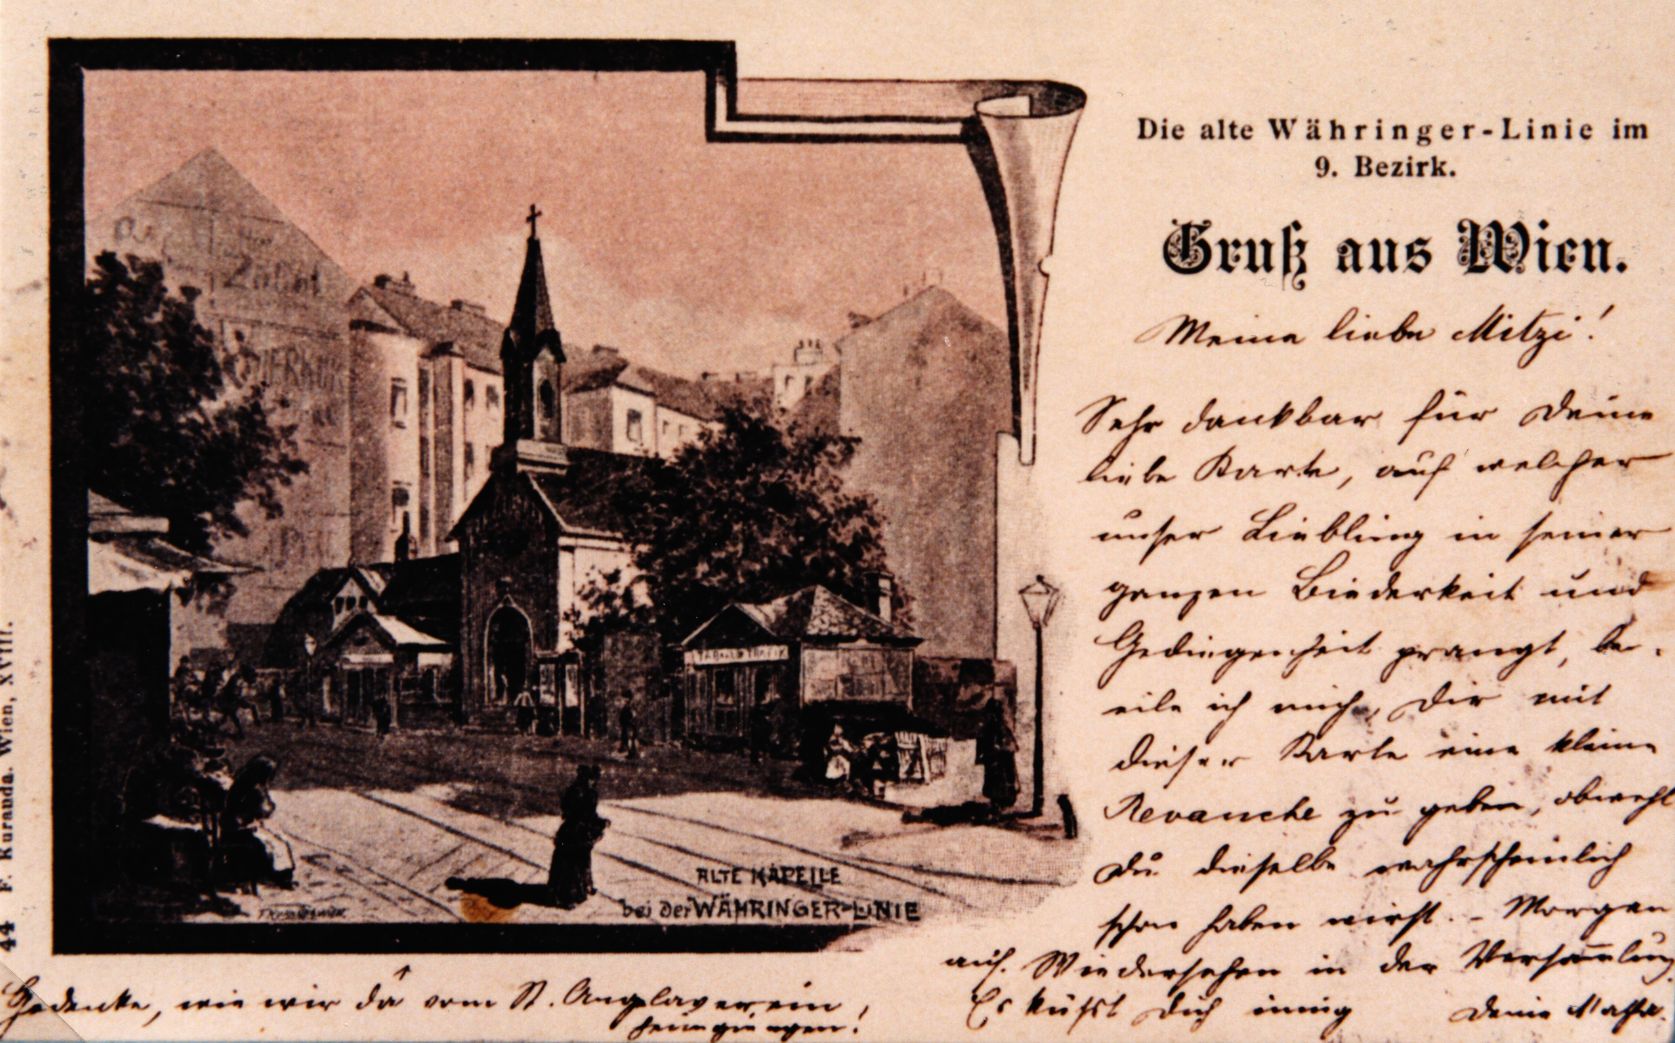 Die alte Währinger-Linie im
9. Bezirk.
Gruß aus Wien.
Meine liebe Mitzi!
Sehr dankbar für Deine
liebe Karte, auf welcher
unser Liebling in seiner
ganzen Biederkeit und
Gediegenheit prangt, be-
eile ich mich, Dir mit
dieser Karte eine kleine
Revanche zu geben, obwohl
Du dieselbe wahrscheinlich
schon haben wirst. - Morgen
auf Wiedersehen in der Versammlung
Es küsst Dich innig Deine
Gedenke, wie wir da vom St.
heimgingen!
ALTE KAPELLE
bei der WÄHRINGER-LINIE
TABAK-TRAFIK
44 F. Kuranda. Wien, XVIII.